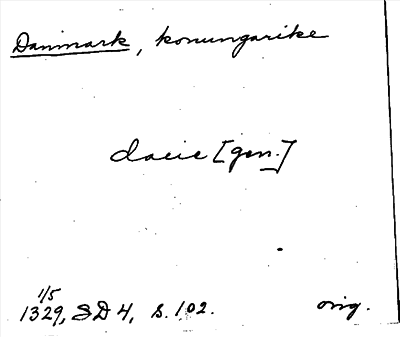 Danmark, konungarike
dacie [gen.]
1/5
1329, SD 4, s. 102. orig.